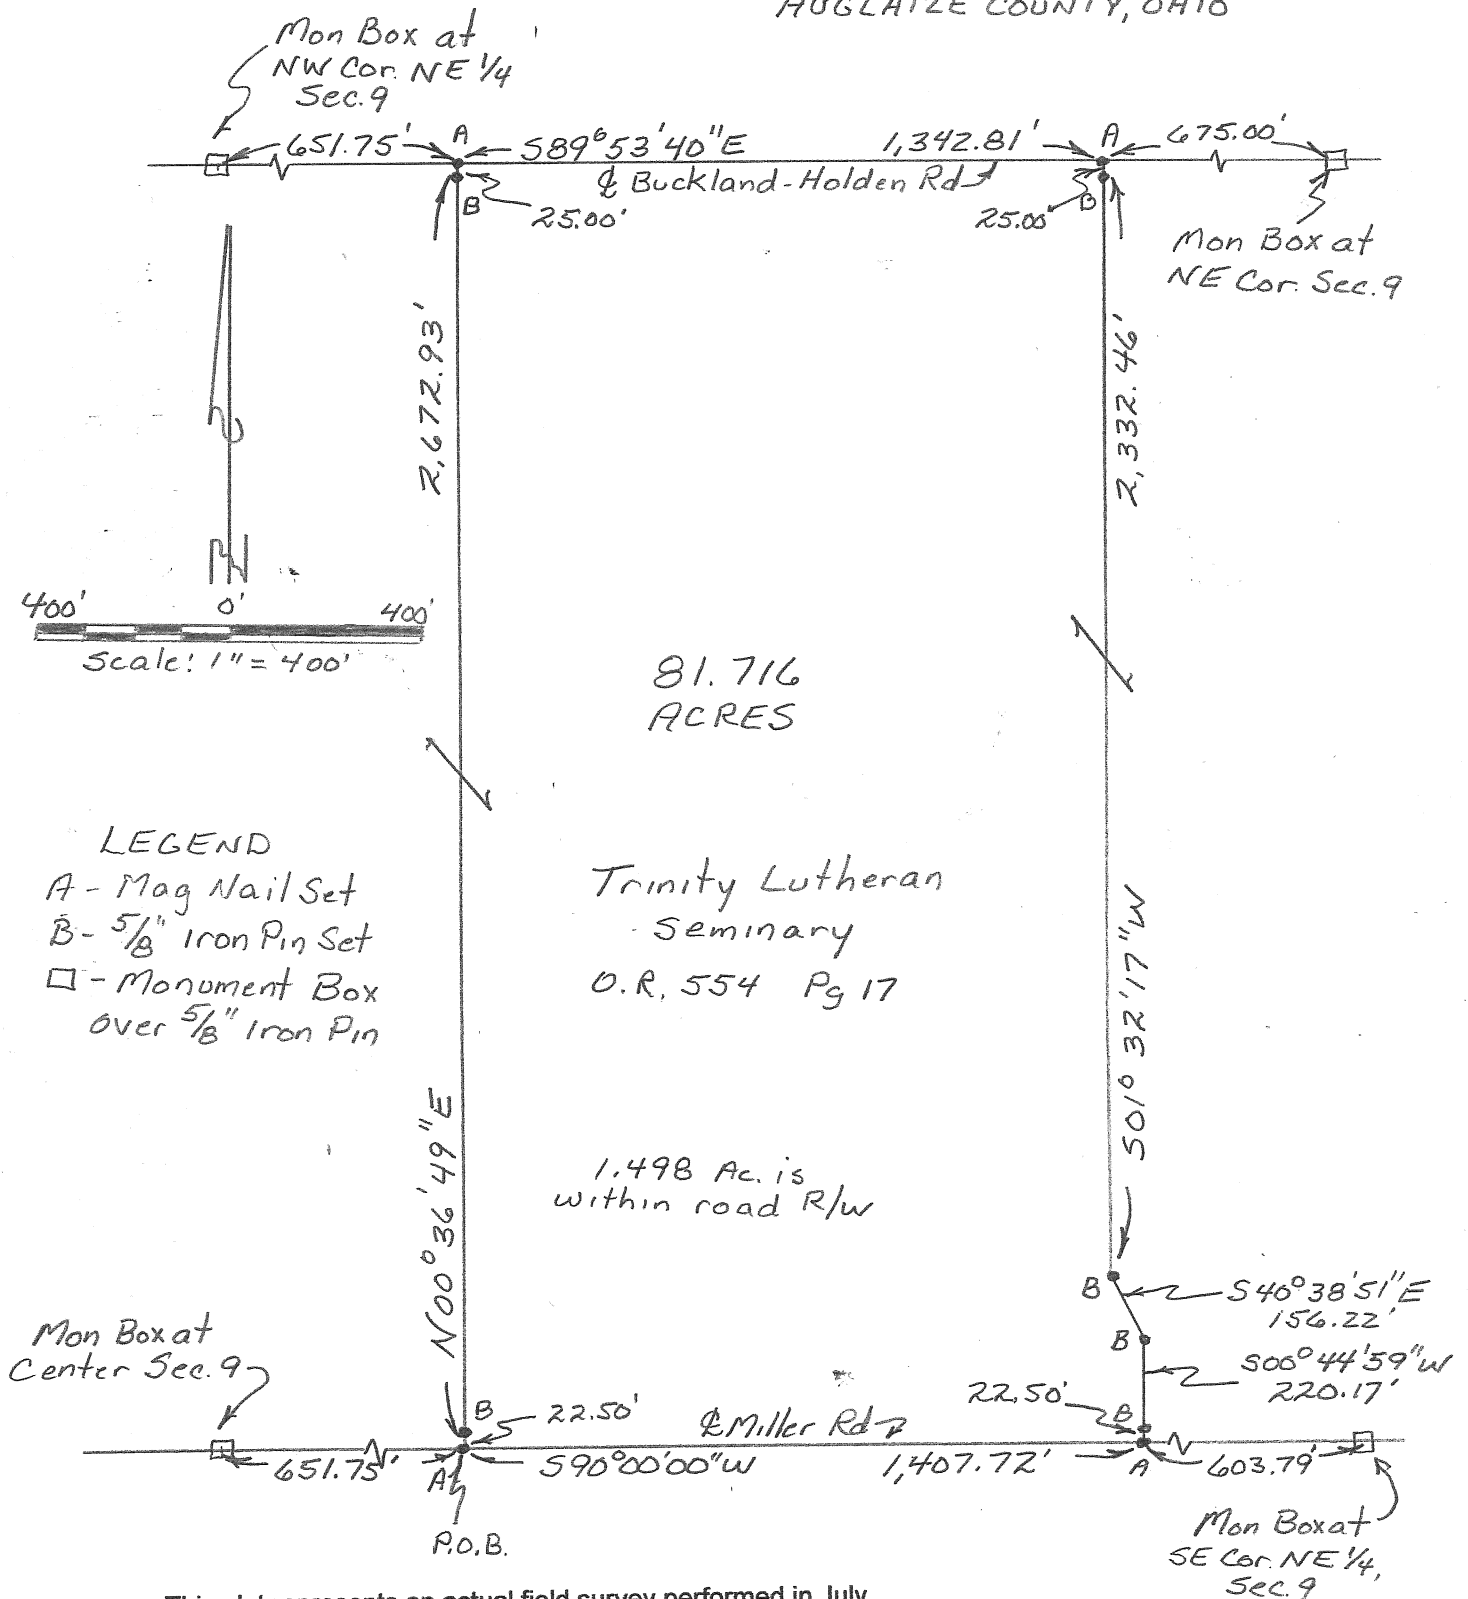 AUGLAIZE COUNTY, OHIO
Mon Box at
NW Cor. NE 1/4
Sec. 9
651.75'
A
S89°53'40"E
1,342.81'
A
675.00'
℄ Buckland-Holden Rd
B
25.00'
25.00'
B
Mon Box at
NE Cor. Sec. 9
2,672.93'
2,332.46'
N
400'
0'
400'
Scale: 1" = 400'
81.716
ACRES
LEGEND
A - Mag Nail Set
B - 5/8" Iron Pin Set
□ - Monument Box
over 5/8" Iron Pin
Trinity Lutheran
Seminary
O.R. 554 Pg 17
N00°36'49"E
S01°32'17"W
1.498 Ac. is
within road R/W
B
S40°38'51"E
156.22'
B
S00°44'59"W
220.17'
Mon Box at
Center Sec. 9
B
22.50'
℄ Miller Rd
22.50'
B
651.75'
A
S90°00'00"W
1,407.72'
A
603.79'
P.O.B.
Mon Box at
SE Cor. NE 1/4,
Sec. 9
This plat represents an actual field survey performed in July